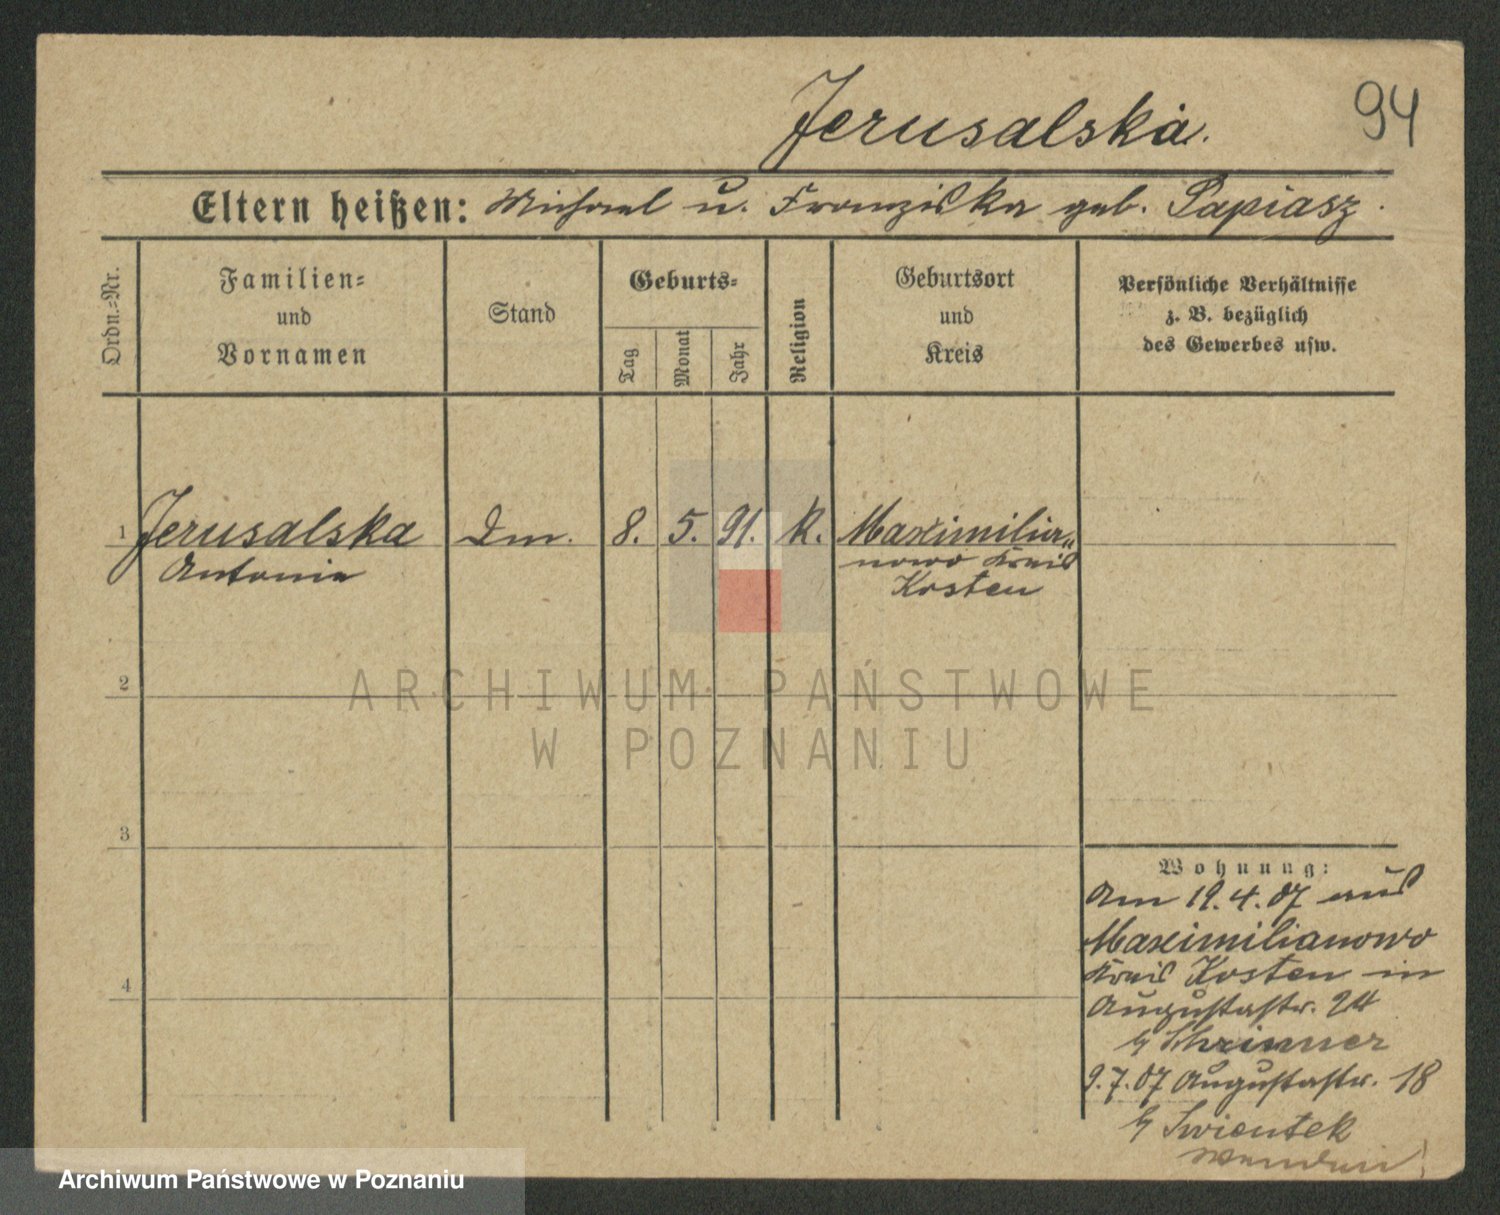 94
Jerusalska.
Eltern heißen: Michael u. Franziska geb. Papiasz.
Ordn.=Nr.
Familien=
und
Vornamen
Stand
Geburts=
Tag
Monat
Jahr
Religion
Geburtsort
und
Kreis
Persönliche Verhältnisse
z. B. bezüglich
des Gewerbes usw.
1 Jerusalska Dm. 8. 5. 91. K. Maximilia„
Antonie nowo Kreis
Kosten
2
ARCHIWUM PAŃSTWOWE
W POZNANIU
3
Wohnung:
Am 19.4.07 aus
Maximilianowo
4
Kreis Kosten in
Augustastr. 24
b/ Schrimmer
9.7.07 Augustastr. 18
b/ Swientek
wenden!
Archiwum Państwowe w Poznaniu